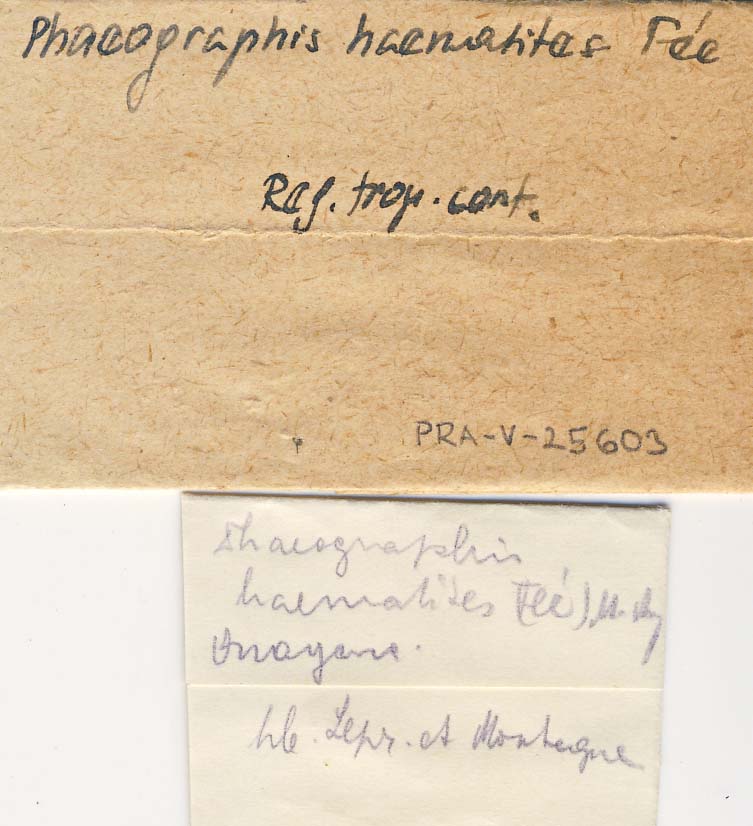 Phaeographis haematites Fée
Reg. trop. cont.
PRA-V-25603
Phaeographis
haematites (Fée)
hb. Lepr. et Montagne